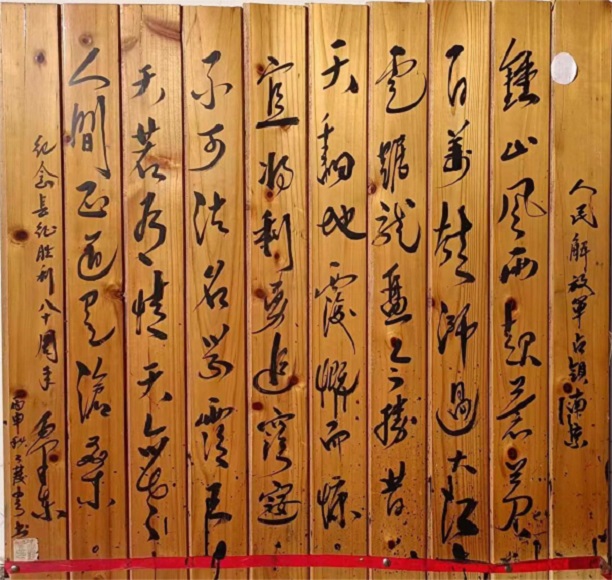 人民解放军占領南京
鍾山风雨起蒼黄
百萬雄师過大江
虎踞龍盤今勝昔
天翻地覆慨而慷
宜将剩勇追窮寇
不可沽名学霸王
天若有情天亦老
人間正道是滄桑。
纪念長征胜利八十周年
丙申秋